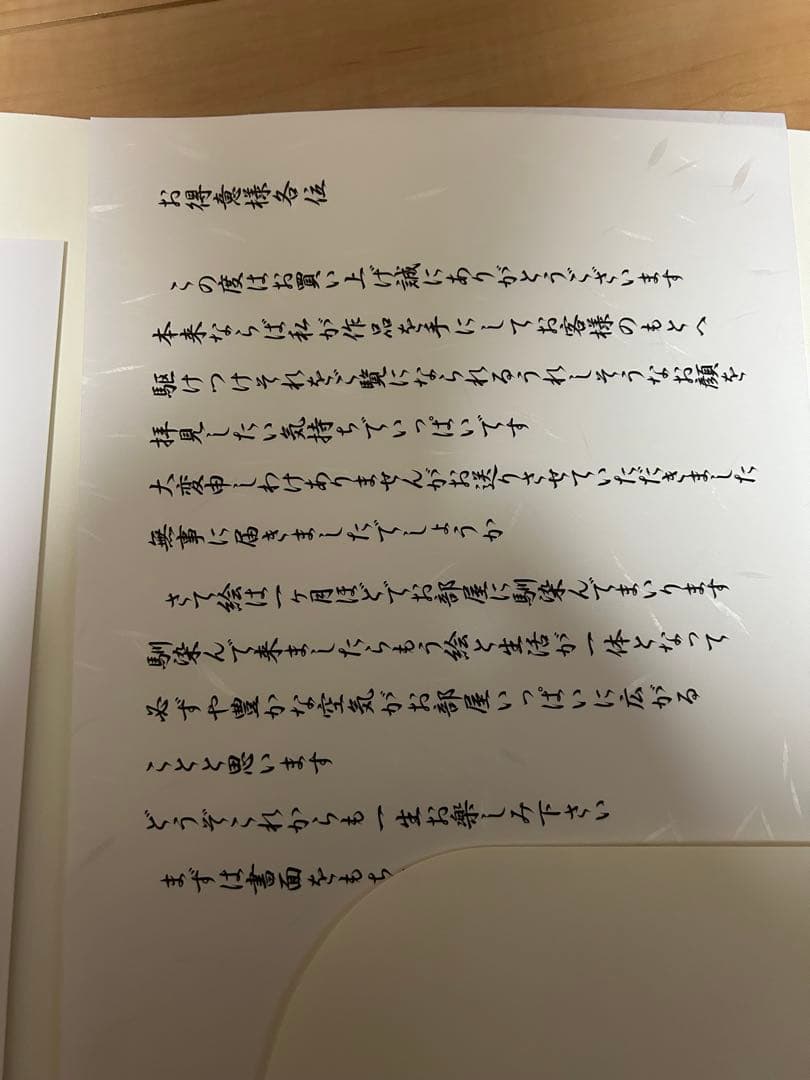 お得意様各位
この度はお買い上げ誠にありがとうございます
本来ならば私が作品を手にしてお客様のもとへ
駆けつけそれをご覧になられるうれしそうなお顔を
拝見したい気持ちでいっぱいです
大変申しわけありませんがお送りさせていただきました
無事に届きましたでしょうか
さて絵は一ヶ月ほどでお部屋に馴染んでまいります
馴染んで来ましたらもう絵と生活が一体となって
必ずや豊かな空気がお部屋いっぱいに広がる
ことと思います
どうぞこれからも一生お楽しみ下さい
まずは書面をもち